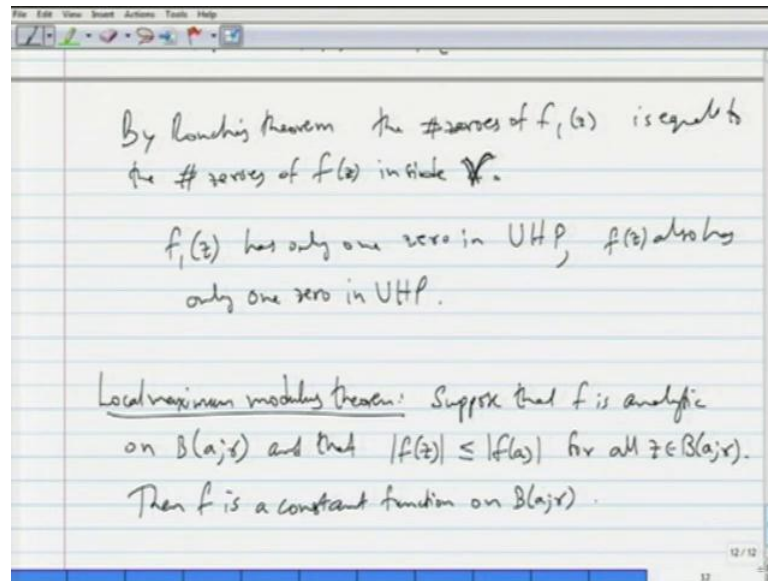 File Edit View Insert Actions Tools Help
By Rouché's theorem the # zeroes of f₁(z) is equal to
the # zeroes of f(z) inside γ.
f₁(z) has only one zero in UHP, f(z) also has
only one zero in UHP.
Local maximum modulus theorem: Suppose that f is analytic
on B(a;r) and that |f(z)| ≤ |f(a)| for all z ∈ B(a;r).
Then f is a constant function on B(a;r).
12 / 12
12